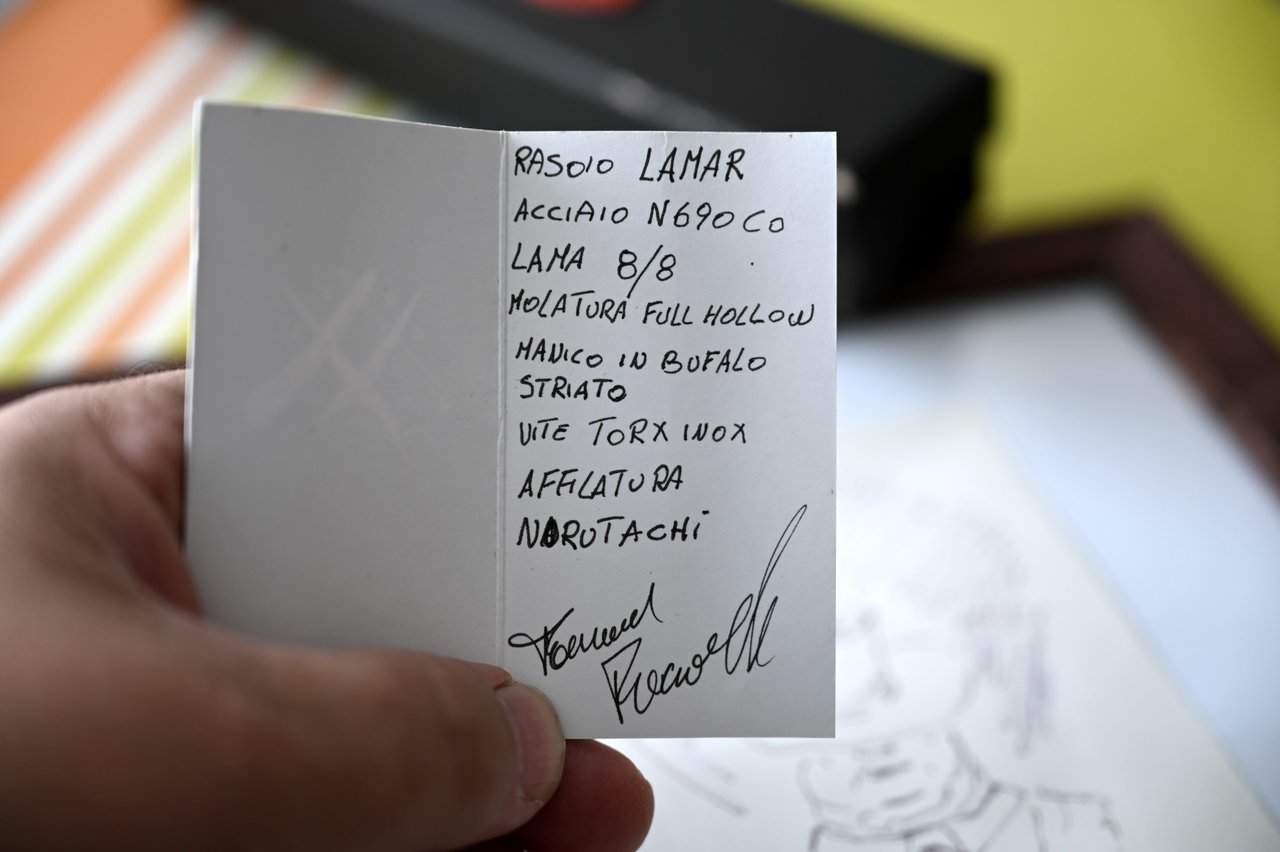 RASOIO LAMAR
ACCIAIO N690Co
LAMA 8/8
MOLATURA FULL HOLLOW
MANICO IN BUFALO
STRIATO
VITE TORX INOX
AFFILATURA
NARUTACHI